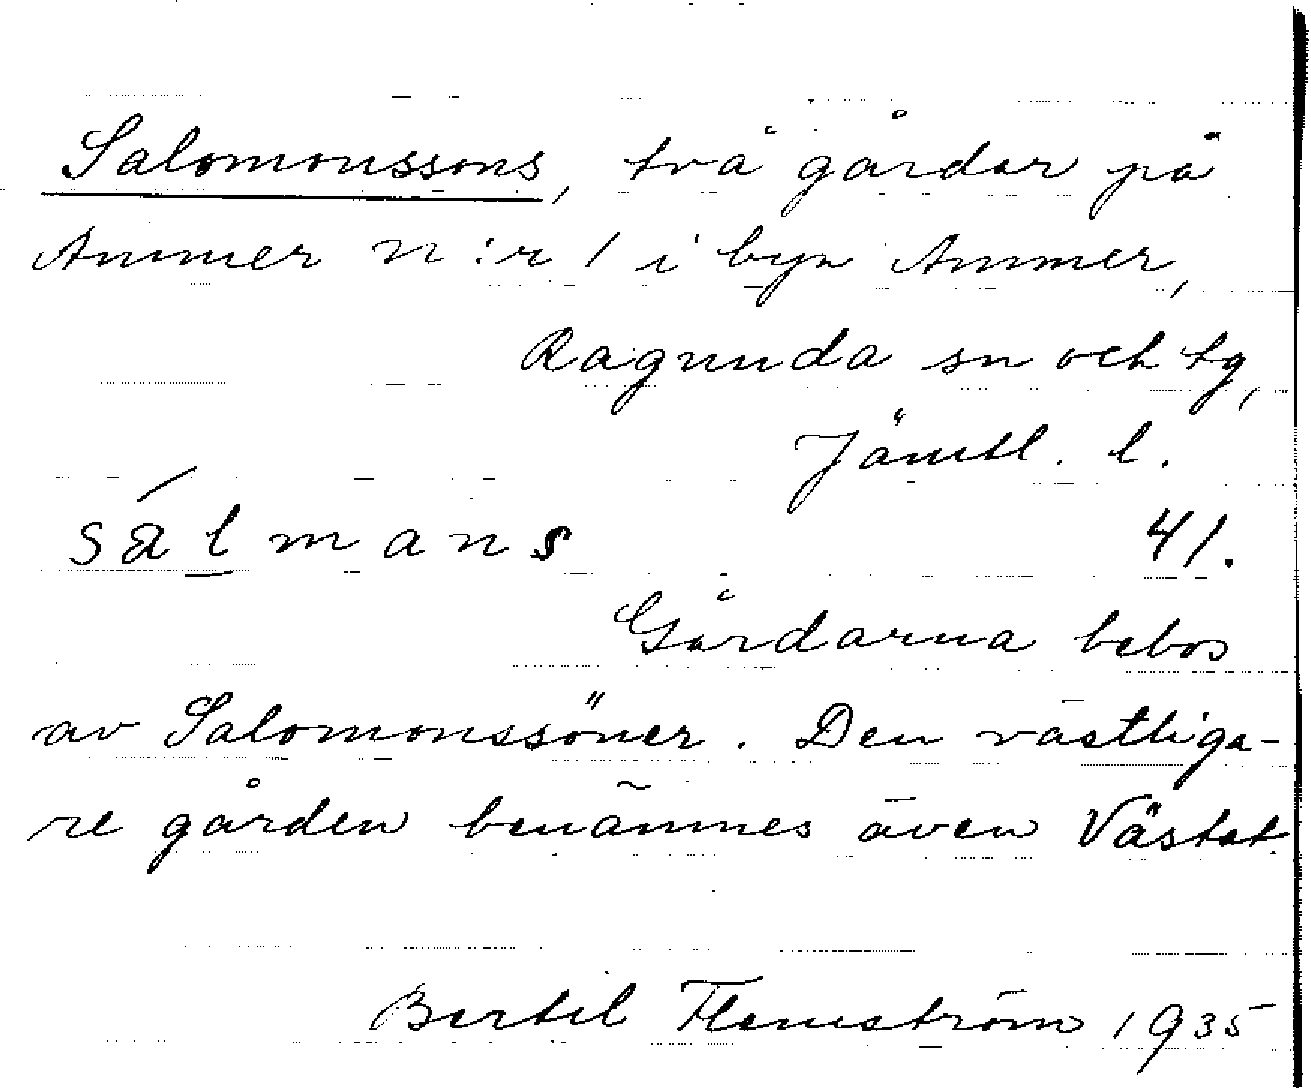 Salomonssons, två gårdar på
Ammer n:r 1 i byn Ammer,
Ragunda sn och tg,
Jämtl. l.
sálmans 41.
Gårdarna bebos
av Salomonssöner. Den västliga-
re gården benämnes även Västat.
Bertil Flemström 1935